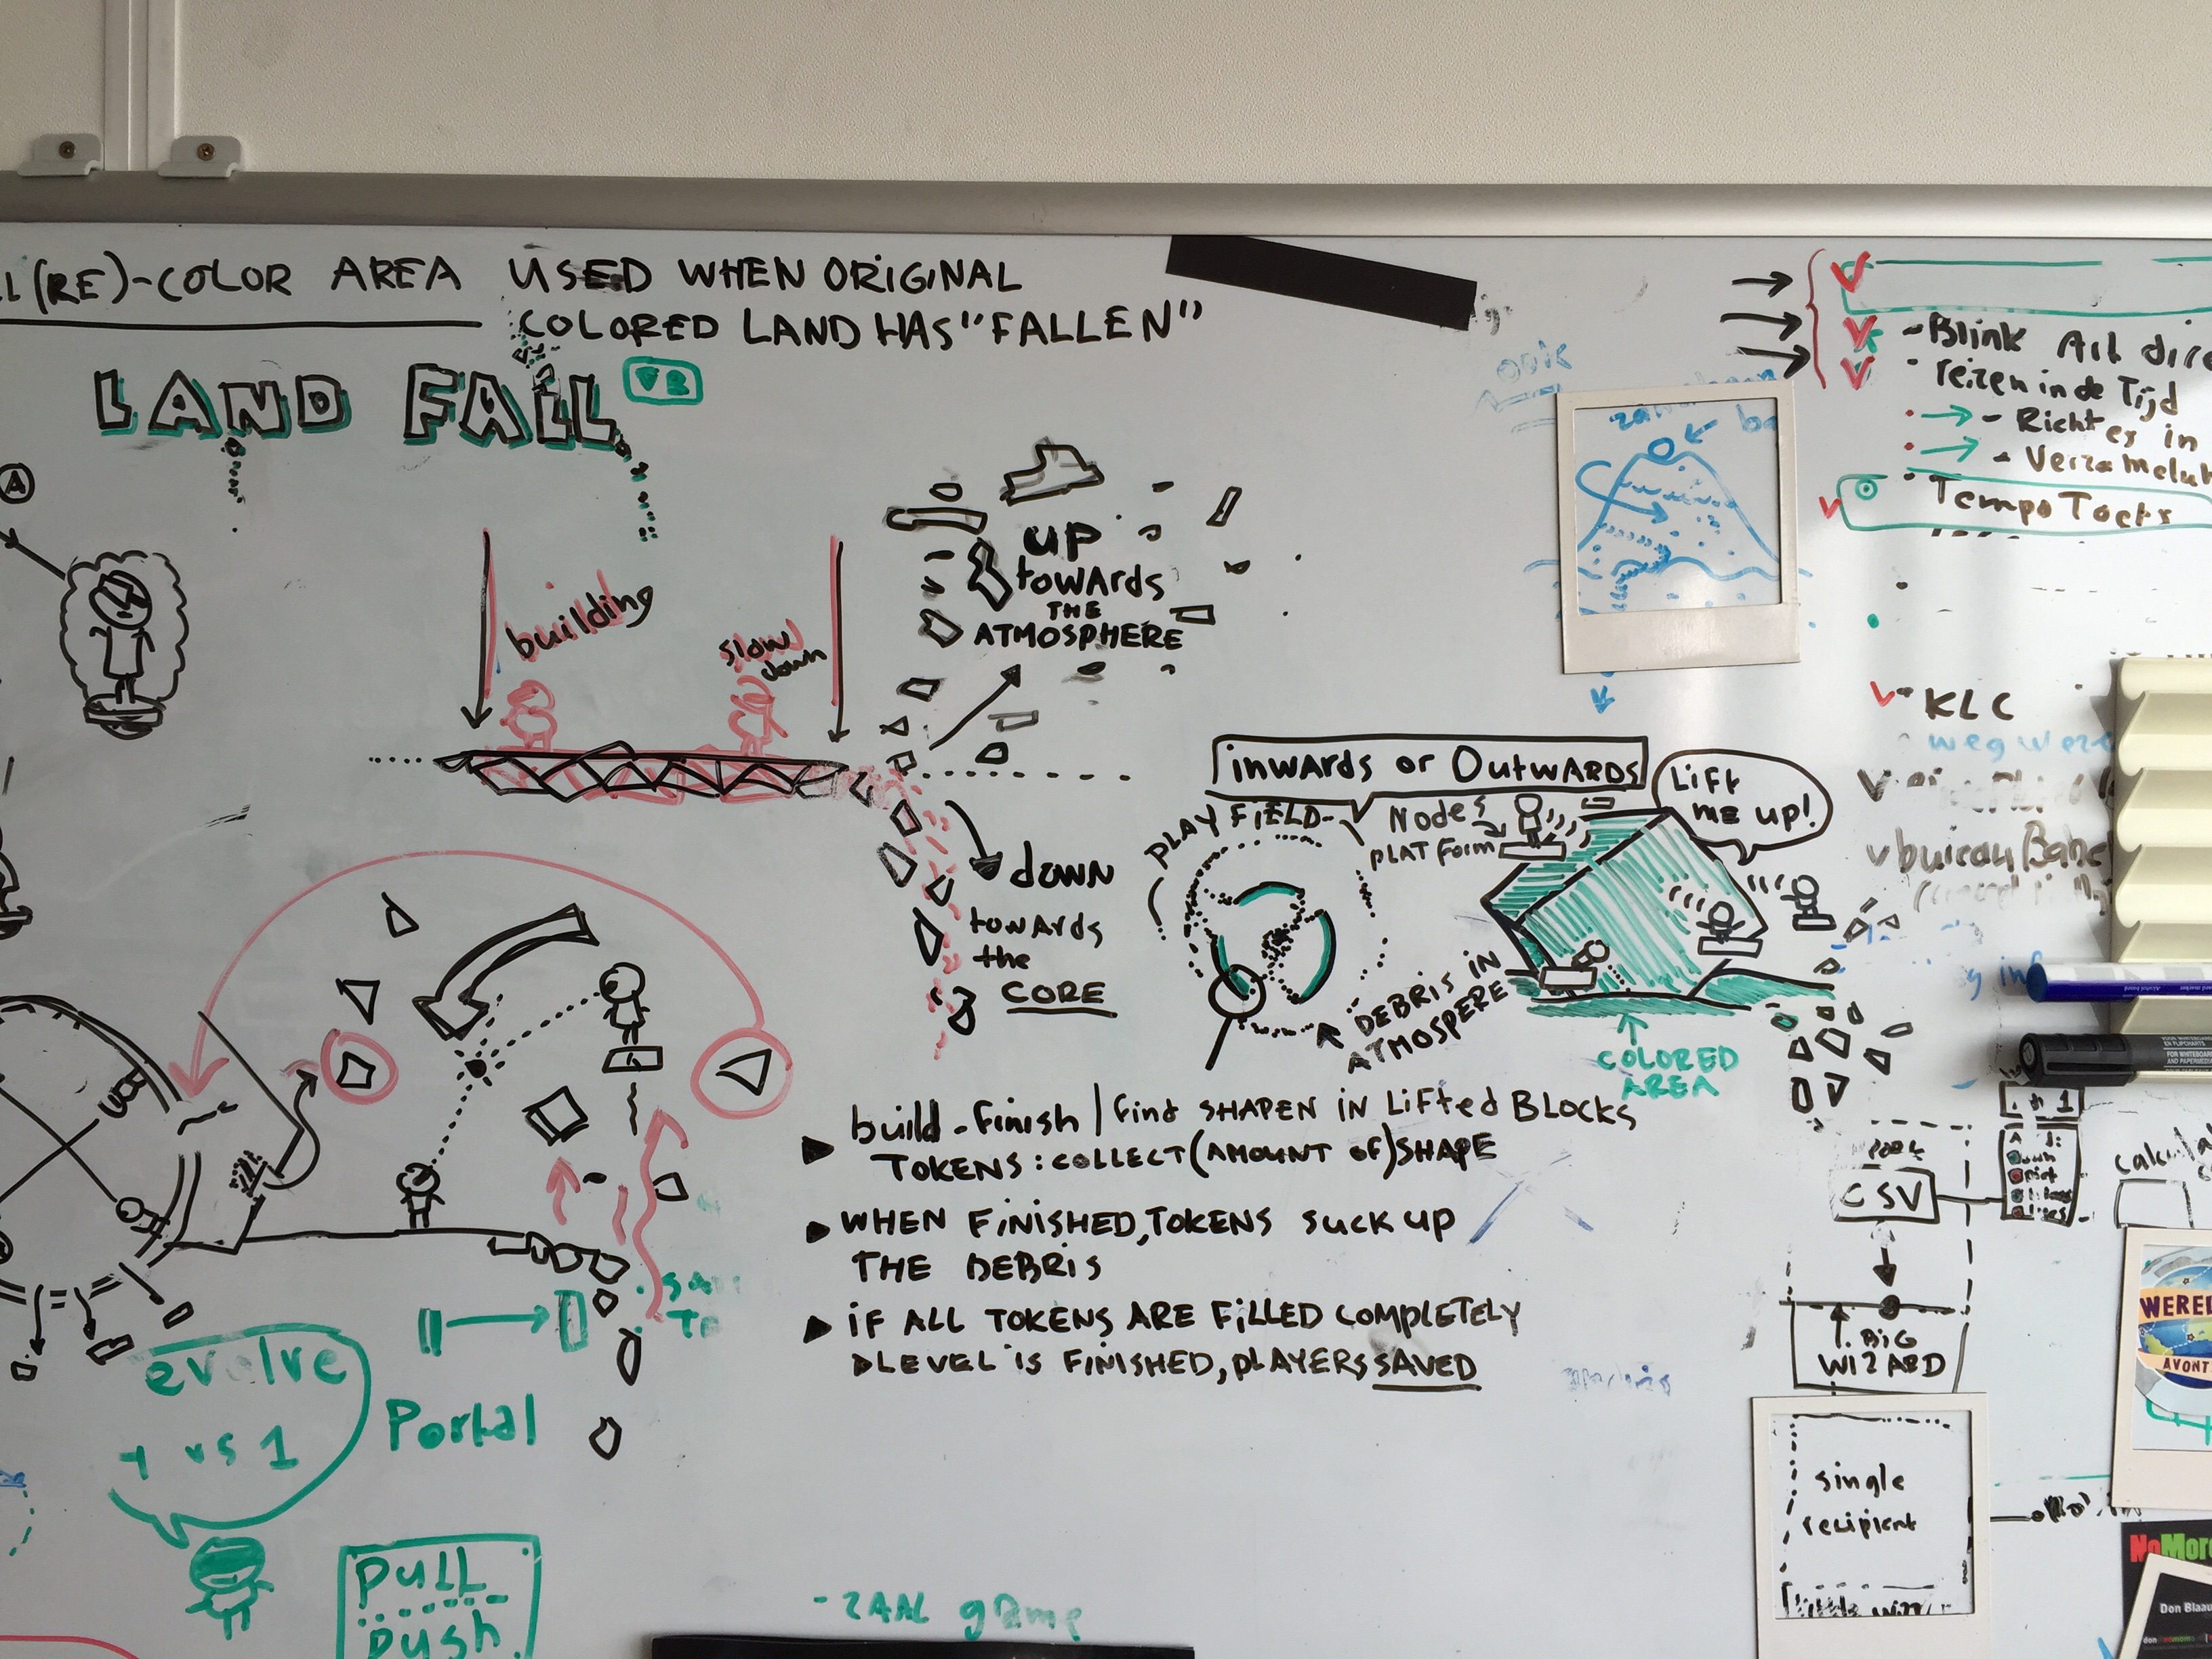 (RE)-COLOR AREA USED WHEN ORIGINAL
COLORED LAND HAS "FALLEN"
LAND FALL
A
building
slow
down
up
towards
THE
ATMOSPHERE
down
towards
the
CORE
inwards or Outwards
PLAY FIELD
Nodes
PLATform
Lift
me up!
DEBRIS IN
ATMOSPERE
COLORED
AREA
build - finish / find SHAPEN IN Lifted BLOCKS
TOKENS: COLLECT (AMOUNT OF) SHAPE
WHEN FINISHED, TOKENS SUCK UP
THE DEBRIS
IF ALL TOKENS ARE FILLED COMPLETELY
LEVEL IS FINISHED, PLAYERS SAVED
evolve
vs 1
Portal
PULL
push
- ZAAL game
- Blink Art
reizen in de Tijd
- Richt es in
Tempo Toets
KLC
CSV
BIG
WIZARD
single
recipient
WERE
AVONT
NoMore
Don Blaau